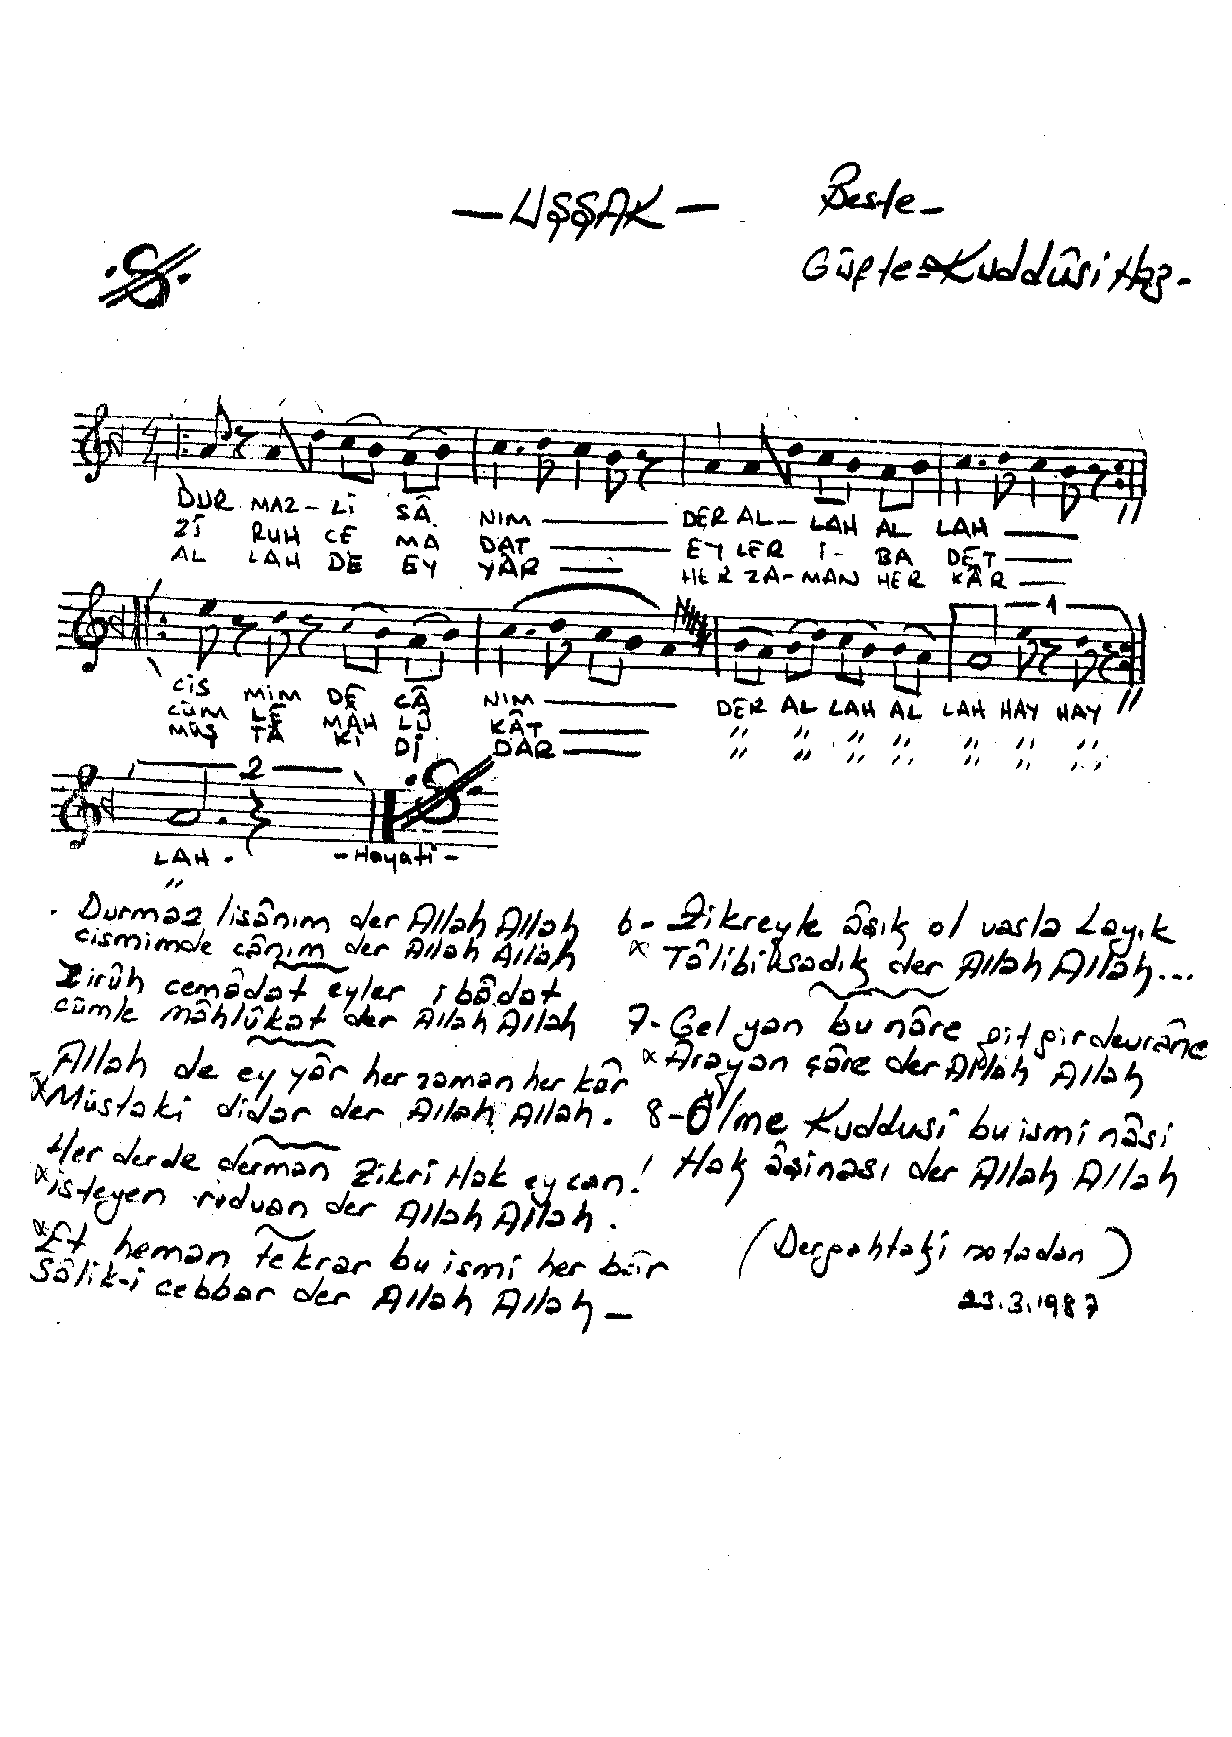 — UŞŞAK —
Beste —
Güfte = Kuddûsi Haz -
4
4
DUR MAZ - Lİ SÂ NIM DER AL - LAH AL LAH
Zİ RUH CE MA DAT EY LER İ - BA DET
AL LAH DE EY YÂR HER ZA - MAN HER KÂR
1
CİS MİM DE CÂ NIM DER AL LAH AL LAH HAY HAY
CÜM LE MAH LÛ KÂT " " " " " " "
MÜŞ TA Kİ Dİ DAR " " " " " " "
2
LAH . - Hayatî -
"
Durmaz lisânım der Allah Allah
cismimde cânım der Allah Allah
Zirûh cemâdat eyler ibâdat
cümle mâhlûkat der Allah Allah
Allah de ey yâr her zaman her kâr
Müstaki didar der Allah Allah.
Her derde derman Zikri Hak ey can!
isteyen rıdvan der Allah Allah.
Et heman tekrar bu ismi her bâr
Sâlik-i cebbar der Allah Allah —
6 - Zikreyle âşık ol vasla Layık
Tâlibi sadık der Allah Allah...
7 - Gel yan bu nâre git gir devrâne
Arayan çâre der Allah Allah
8 - Ölme Kuddusî bu ismi nâsi
Hak âşinası der Allah Allah
(Dergahtaki notadan)
23.3.1987